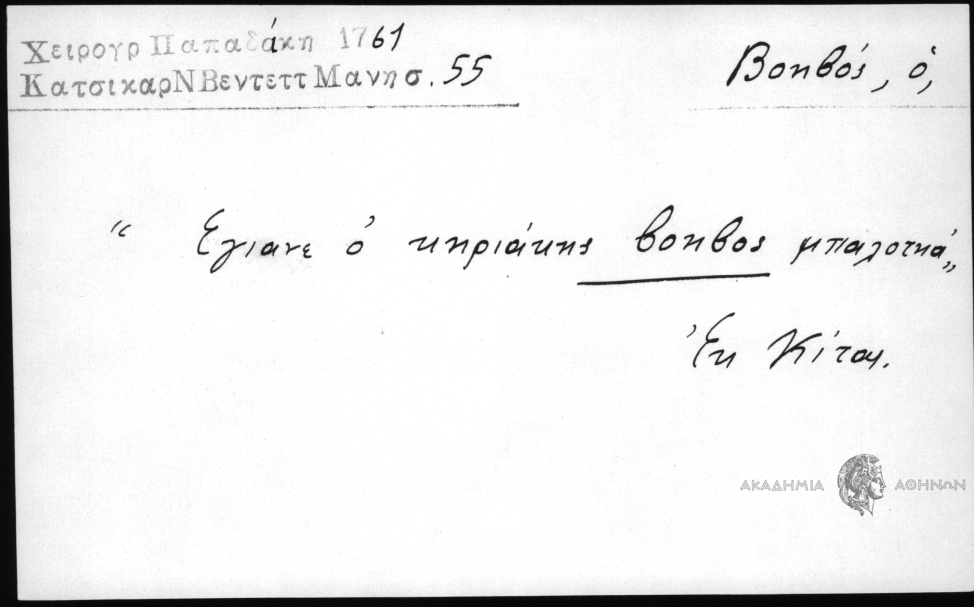 Χειρογρ Παπαδάκη 1761
Κατσικαρ Ν Βεντεττ Μανη σ. 55
Βοηβός, ὁ,
“ Εγιανε ὁ κηριάκης βοηβος μπαλοτκά „
Ἐκ Κίτομ.
ΑΚΑΔΗΜΙΑ ΑΘΗΝΩΝ